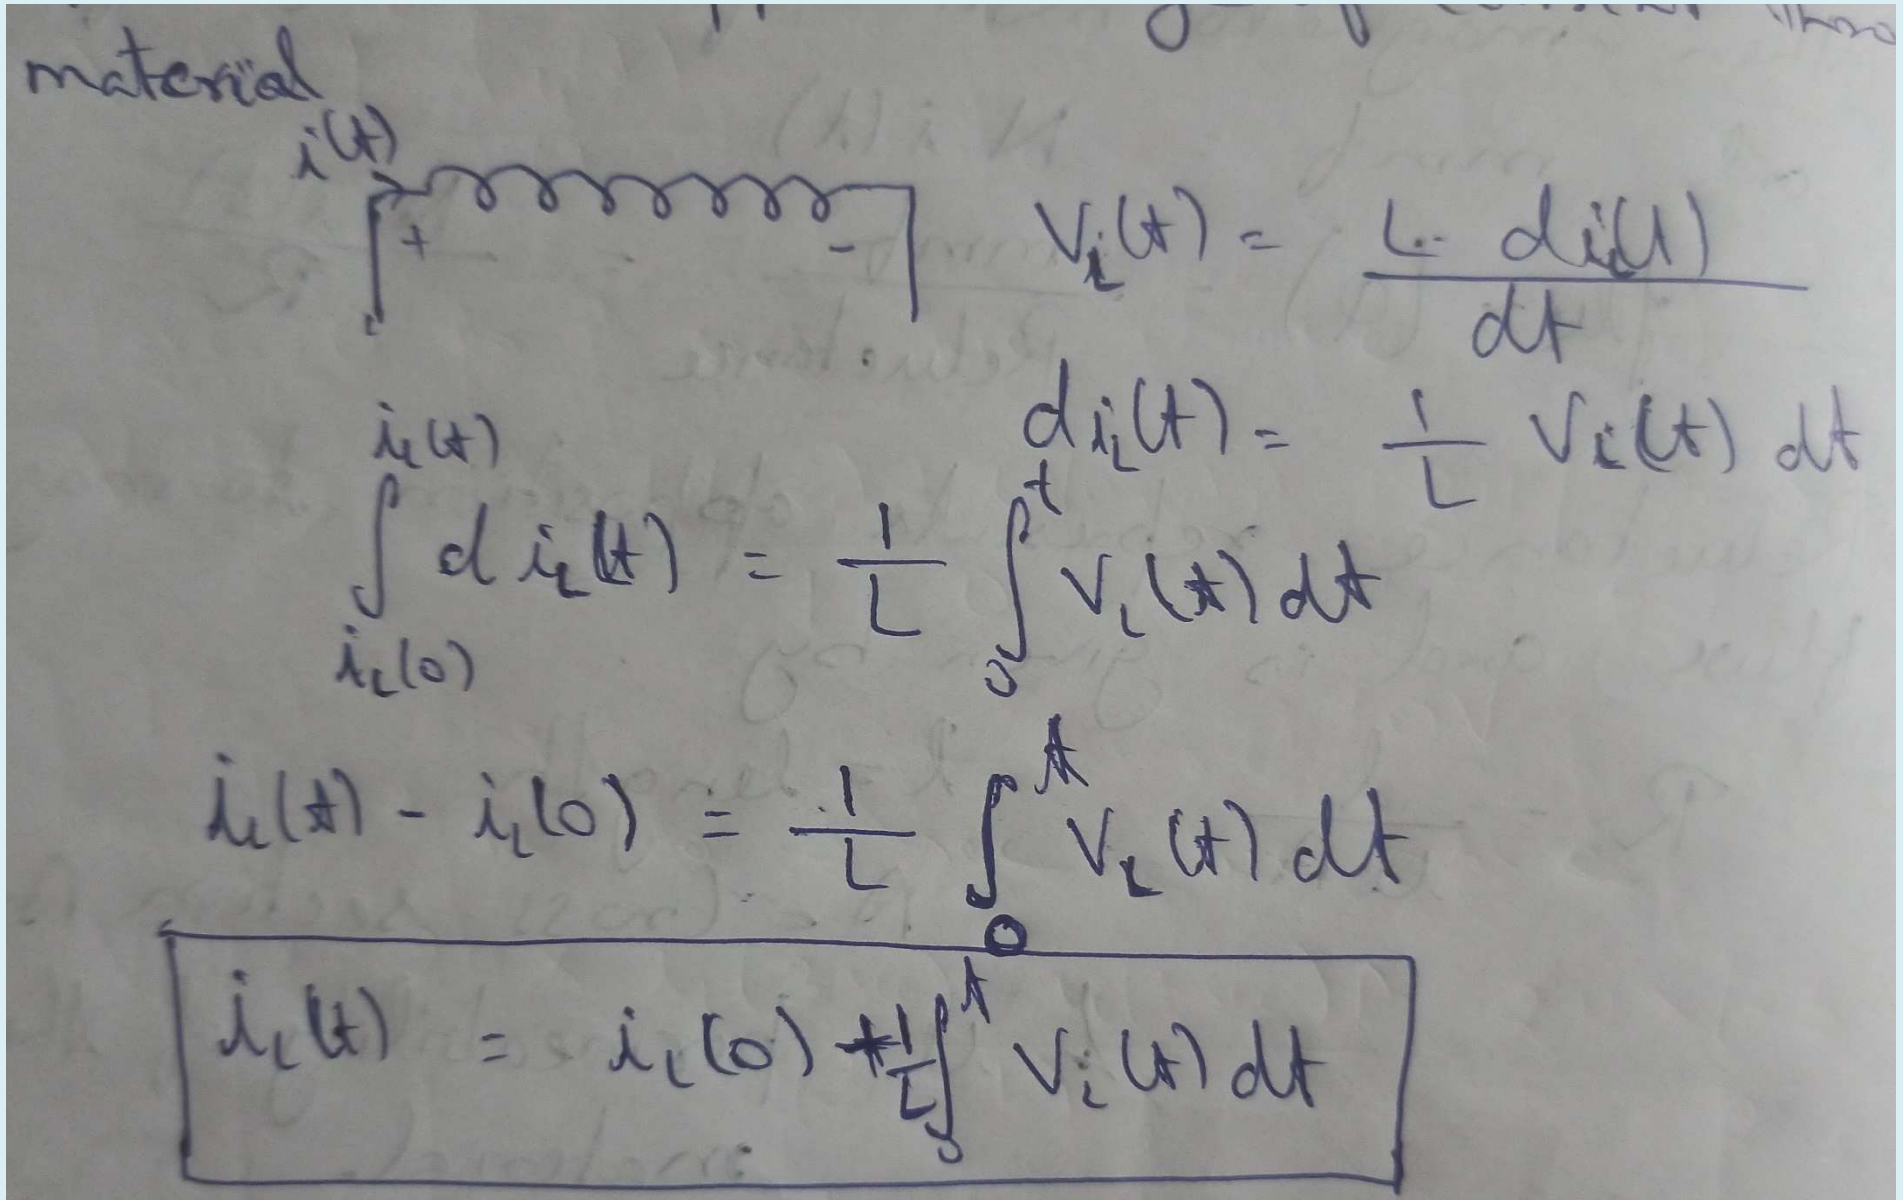 material
i(t)
+ -
V_L(t) = L di_L(t) / dt
di_L(t) = 1/L V_L(t) dt
∫_{i_L(0)}^{i_L(t)} d i_L(t) = 1/L ∫_0^t V_L(t) dt
i_L(t) - i_L(0) = 1/L ∫_0^t V_L(t) dt
i_L(t) = i_L(0) + 1/L ∫_0^t V_L(t) dt